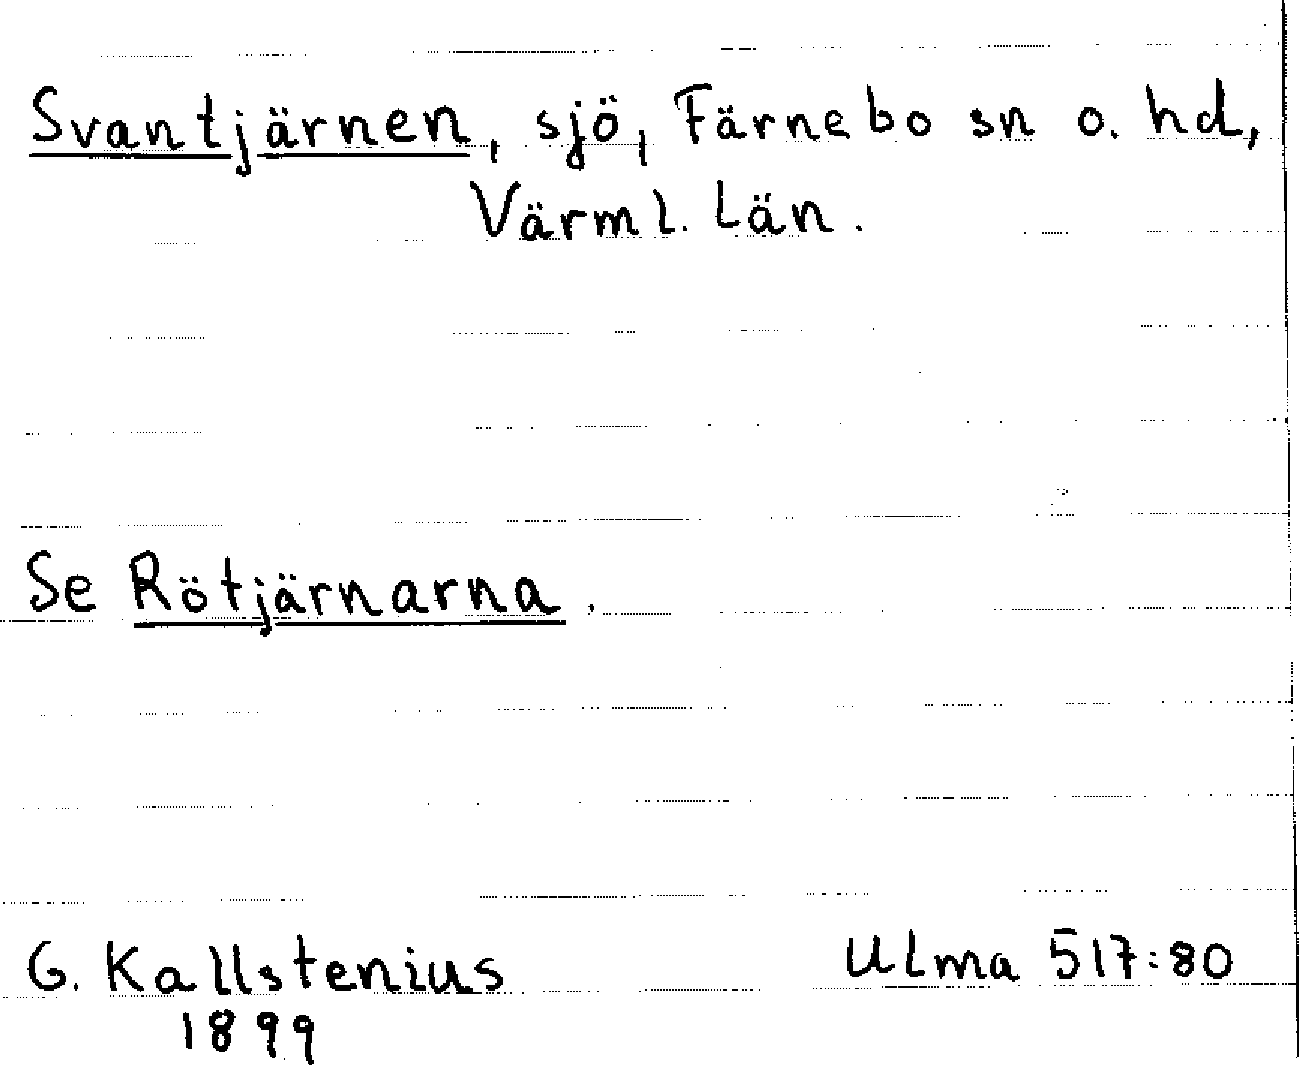 Svantjärnen, sjö, Färnebo sn o. hd,
Värml. Län.
Se Rötjärnarna.
G. Kallstenius Ulma 517:80
1899